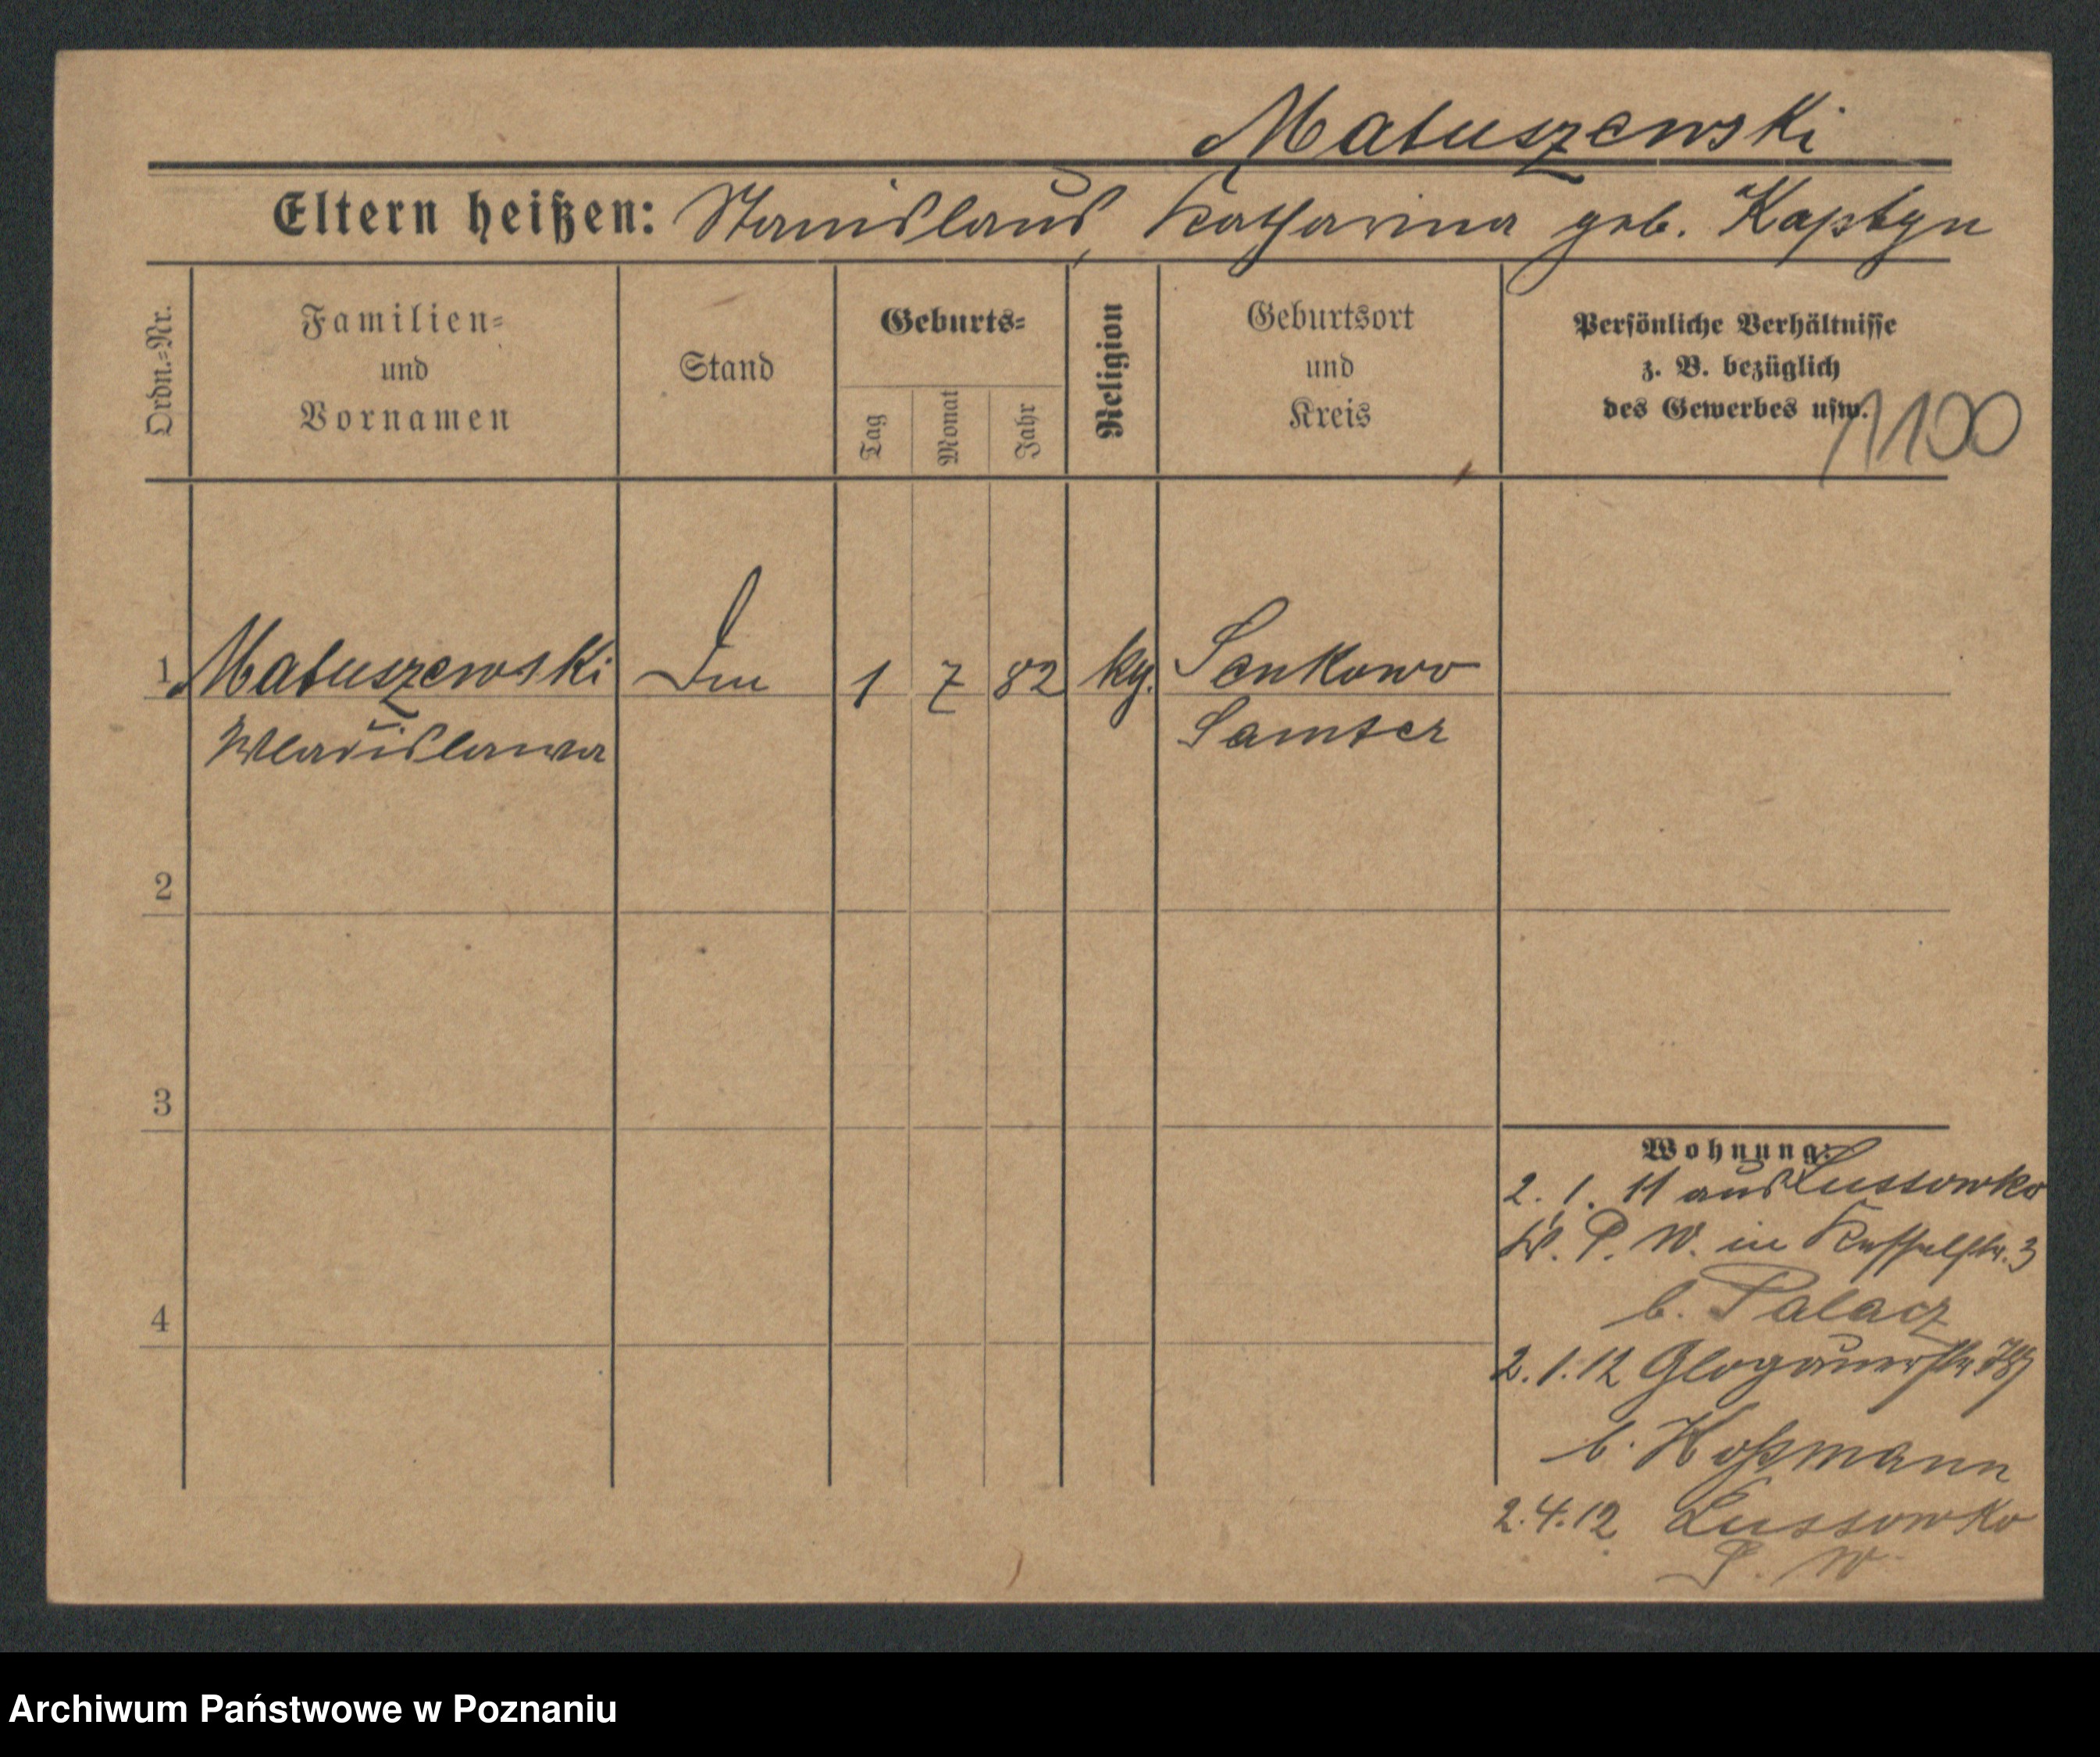 Matuszewski
Eltern heißen: Stanislaus, Katharina geb. Kaptyn
Ordn.=Nr.
Familien=
und
Vornamen
Stand
Geburts=
Tag
Monat
Jahr
Religion
Geburtsort
und
Kreis
Persönliche Verhältnisse
z. B. bezüglich
des Gewerbes usw.
1100
1 Matuszewski 1 7 82 Senkowo
Wladislawa Samter
2
3
4
Wohnung:
2. 1. 11 aus Lussowko
P. W. in 3
b. Palacz
2.1.12 Glogauerstr
b. Hoßmann
2.4.12 Lussowko
P. W.
Archiwum Państwowe w Poznaniu